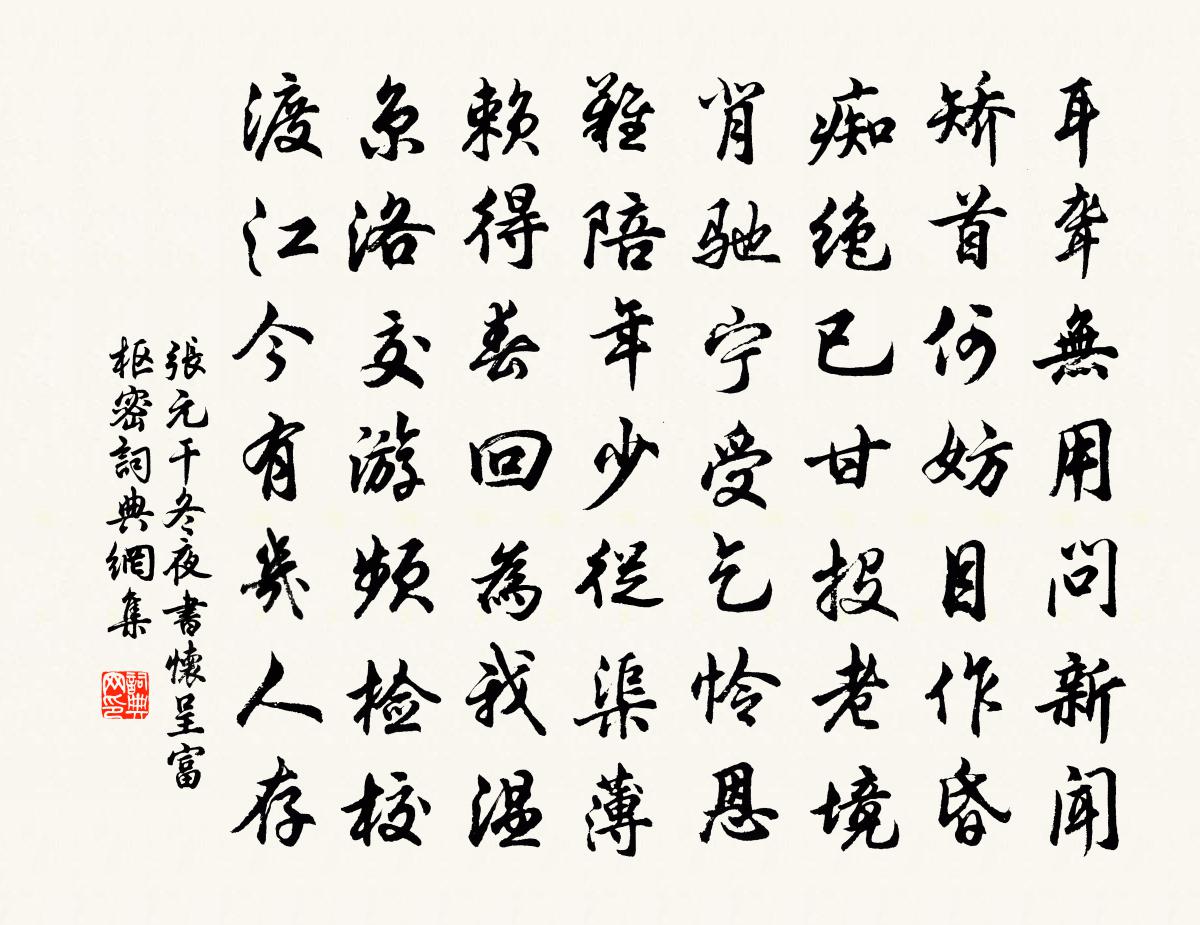 耳聋無用问新闻
矫首何妨目作昏
痴绝已甘投老境
肖驰宁受乞怜恩
難陪年少從渠薄
赖得春回為我温
京洛交游频检校
渡江今有幾人存
張元干冬夜書懷呈富
枢密詞典網集
詞典网印